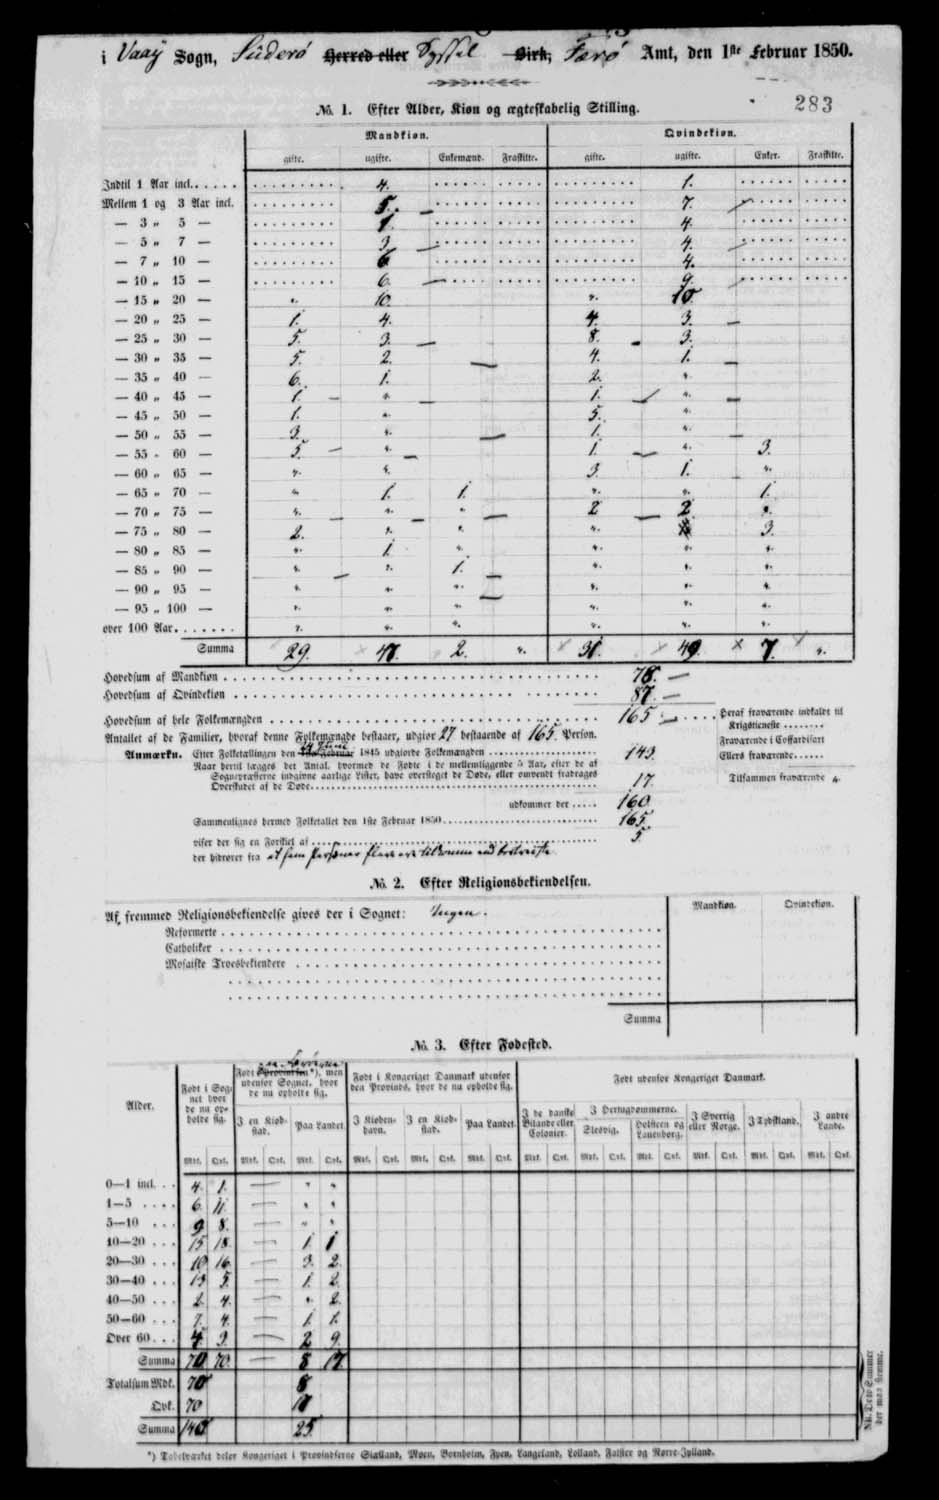 i Vaag Sogn, Süderø Herred eller Syssel Birk, Færø Amt, den 1ste Februar 1850.
283
No. 1. Efter Alder, Kion og ægteskabelig Stilling.
Mandkion. Qvindekion.
gifte. ugifte. Enkemænd. Fraskilte. gifte. ugifte. Enker. Fraskilte.
Indtil 1 Aar incl. 4. 1.
Mellem 1 og 3 Aar incl. 5. 7.
— 3 „ 5 — 1. 4.
— 5 „ 7 — 3. 4.
— 7 „ 10 — 6. 4.
— 10 „ 15 — 6. 9.
— 15 „ 20 — „ 10. „ 10.
— 20 „ 25 — 1. 4. 4. 3.
— 25 „ 30 — 5. 3. 8. 3.
— 30 „ 35 — 5. 2. 4. 1.
— 35 „ 40 — 6. 1. 2. „
— 40 „ 45 — 1. „ 1. „
— 45 „ 50 — 1. „ 5. „
— 50 „ 55 — 3. „ 1. „
— 55 „ 60 — 5. „ 1. „ 3.
— 60 „ 65 — „ „ 3. 1. „
— 65 „ 70 — „ 1. 1. „ „ 1.
— 70 „ 75 — „ „ „ 2 2 „
— 75 „ 80 — 2. „ „ „ 3.
— 80 „ 85 — „ 1. „ „ „ „
— 85 „ 90 — „ „ 1. „ „ „
— 90 „ 95 — „ „ „ „ „ „
— 95 „ 100 — „ „ „ „ „ „
over 100 Aar. „ „ „ „ „ „
Summa 29. 47. 2. „ 31. 49. 7. „
Hovedsum af Mandkion 78.
Hovedsum af Qvindekion 87.
Hovedsum af hele Folkemængden 165
Heraf fraværende indkaldt til
Krigstieneste
Antallet af de Familier, hvoraf denne Folkemængde bestaaer, udgior 27 bestaaende af 165. Person.
Fraværende i Coffardifart
Anmærkn. Efter Folketællingen den 1ste Februar 1845 udgiorde Folkemængden 143.
Ellers fraværende
Naar dertil lægges det Antal, hvormed de Fødte i de mellemliggende 5 Aar, efter de af
Sognepræsterne indgivne aarlige Lister, have oversteget de Døde, eller omvendt fradrages
Overskudet af de Døde 17.
Tilsammen fraværende „
udkommer der 160.
Sammenlignes dermed Folketallet den 1ste Februar 1850 165.
viser der sig en Forskiel af 5.
der hidrører fra at fem Personer flere ere tilkomne end bortreiste
No. 2. Efter Religionsbekiendelsen.
Mandkion. Qvindekion.
Af fremmed Religionsbekiendelse gives der i Sognet: Ingen.
Reformerte
Catholiker
Mosaiske Troesbekiendere
Summa
No. 3. Efter Fødested.
Alder.
Født i Sognet hvor de nu opholde sig.
Født i Provindsen*), men udenfor Sognet, hvor de nu opholde sig.
Født i Kongeriget Danmark udenfor den Provinds, hvor de nu opholde sig.
Født udenfor Kongeriget Danmark.
I en Kiøbstad. Paa Landet. I Kiøbenhavn. I en Kiøbstad. Paa Landet. I de danske Bilande eller Colonier. I Hertugdømmerne. Slesvig. Holsteen og Lauenborg. I Sverrig eller Norge. I Tydskland. I andre Lande.
Mdk. Qvk. Mdk. Qvk. Mdk. Qvk. Mdk. Qvk. Mdk. Qvk. Mdk. Qvk. Mdk. Qvk. Mdk. Qvk. Mdk. Qvk. Mdk. Qvk. Mdk. Qvk. Mdk. Qvk.
0—1 incl. 4. 1. — „ „
1—5 6. 11. — „ „
5—10 9 8. — „ „
10—20 15 18. — 1. 1
20—30 10 16. — 3. 2.
30—40 13 5. — 1. 2.
40—50 2. 4. — „ 2.
50—60 7. 4. — 1. 1.
Over 60 4 3. — 2 9.
Summa 70 70. — 8 17.
Totalsum Mdk. 70 8
Qvk. 70 17
Summa 140 25.
NB. Disse Summer
der maa stemme.
*) Tabelværket deler Kongeriget i Provindserne Siælland, Moen, Bornholm, Fyen, Langeland, Lolland, Falster og Nørre-Jylland.